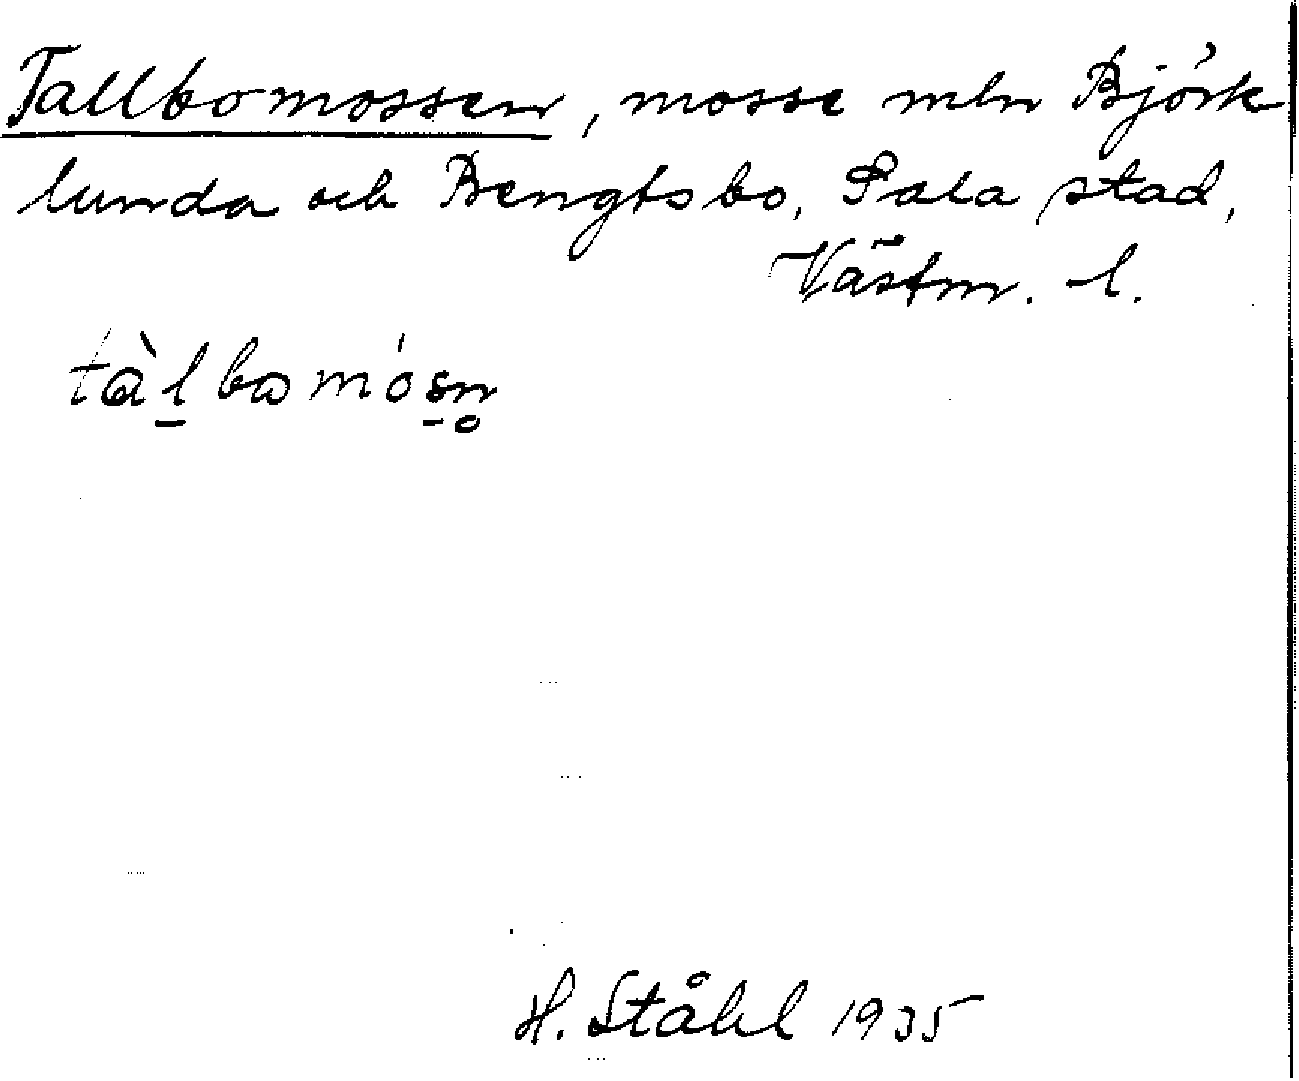 Tallbomossen, mosse mln Björk
lunda och Bengtsbo, Sala stad,
Västm. l.
tàl̠bomós̠n̥
H. Ståhl 1935